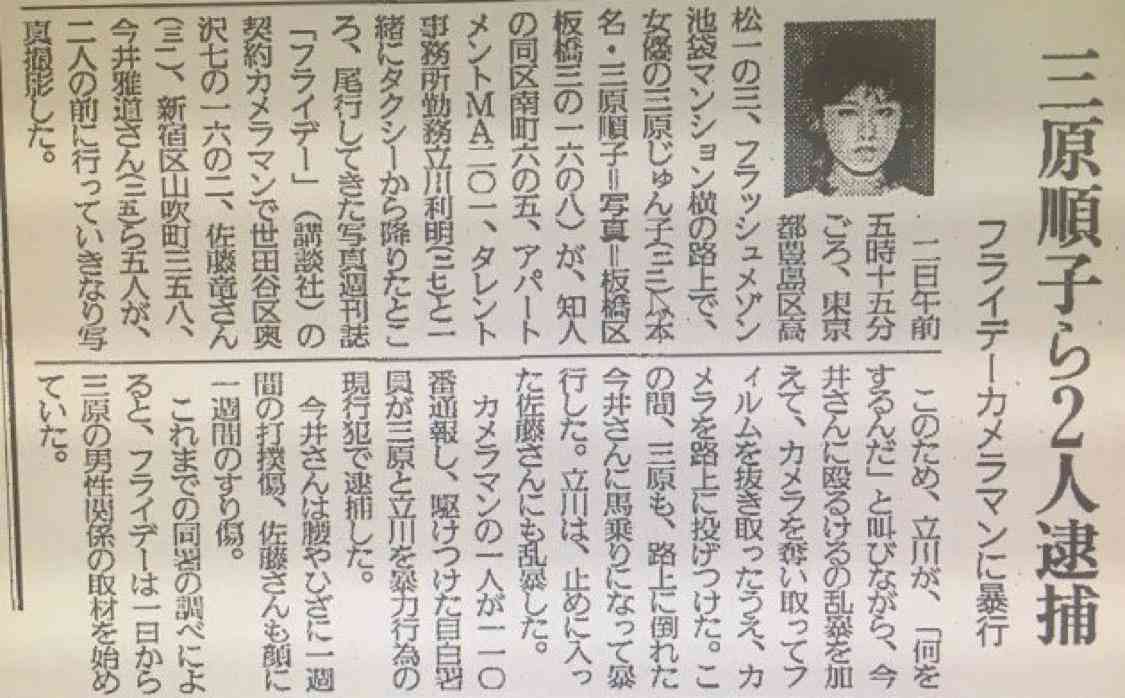 三原順子ら2人逮捕
フライデーカメラマンに暴行
二日午前
五時十五分
ごろ、東京
都豊島区高
松一の三、フラッシュメゾン
池袋マンション横の路上で、
女優の三原じゅん子(二三)＝本
名・三原順子＝写真＝板橋区
板橋三の一六の八）が、知人
の同区南町六の五、アパート
メントMA二〇一、タレント
事務所勤務立川利明(三七)と一
緒にタクシーから降りたとこ
ろ、尾行してきた写真週刊誌
「フライデー」（講談社）の
契約カメラマンで世田谷区奥
沢七の一六の二、佐藤竜さん
(三一)、新宿区山吹町三五八、
今井雅道さん(二五)ら五人が、
二人の前に行っていきなり写
真撮影した。
このため、立川が、「何を
するんだ」と叫びながら、今
井さんに殴るけるの乱暴を加
えて、カメラを奪い取ってフ
ィルムを抜き取ったうえ、カ
メラを路上に投げつけた。こ
の間、三原も、路上に倒れた
今井さんに馬乗りになって暴
行した。立川は、止めに入っ
た佐藤さんにも乱暴した。
カメラマンの一人が一一〇
番通報し、駆けつけた目白署
員が三原と立川を暴力行為の
現行犯で逮捕した。
今井さんは腰やひざに一週
間の打撲傷、佐藤さんも顔に
一週間のすり傷。
これまでの同署の調べによ
ると、フライデーは一日から
三原の男性関係の取材を始め
ていた。